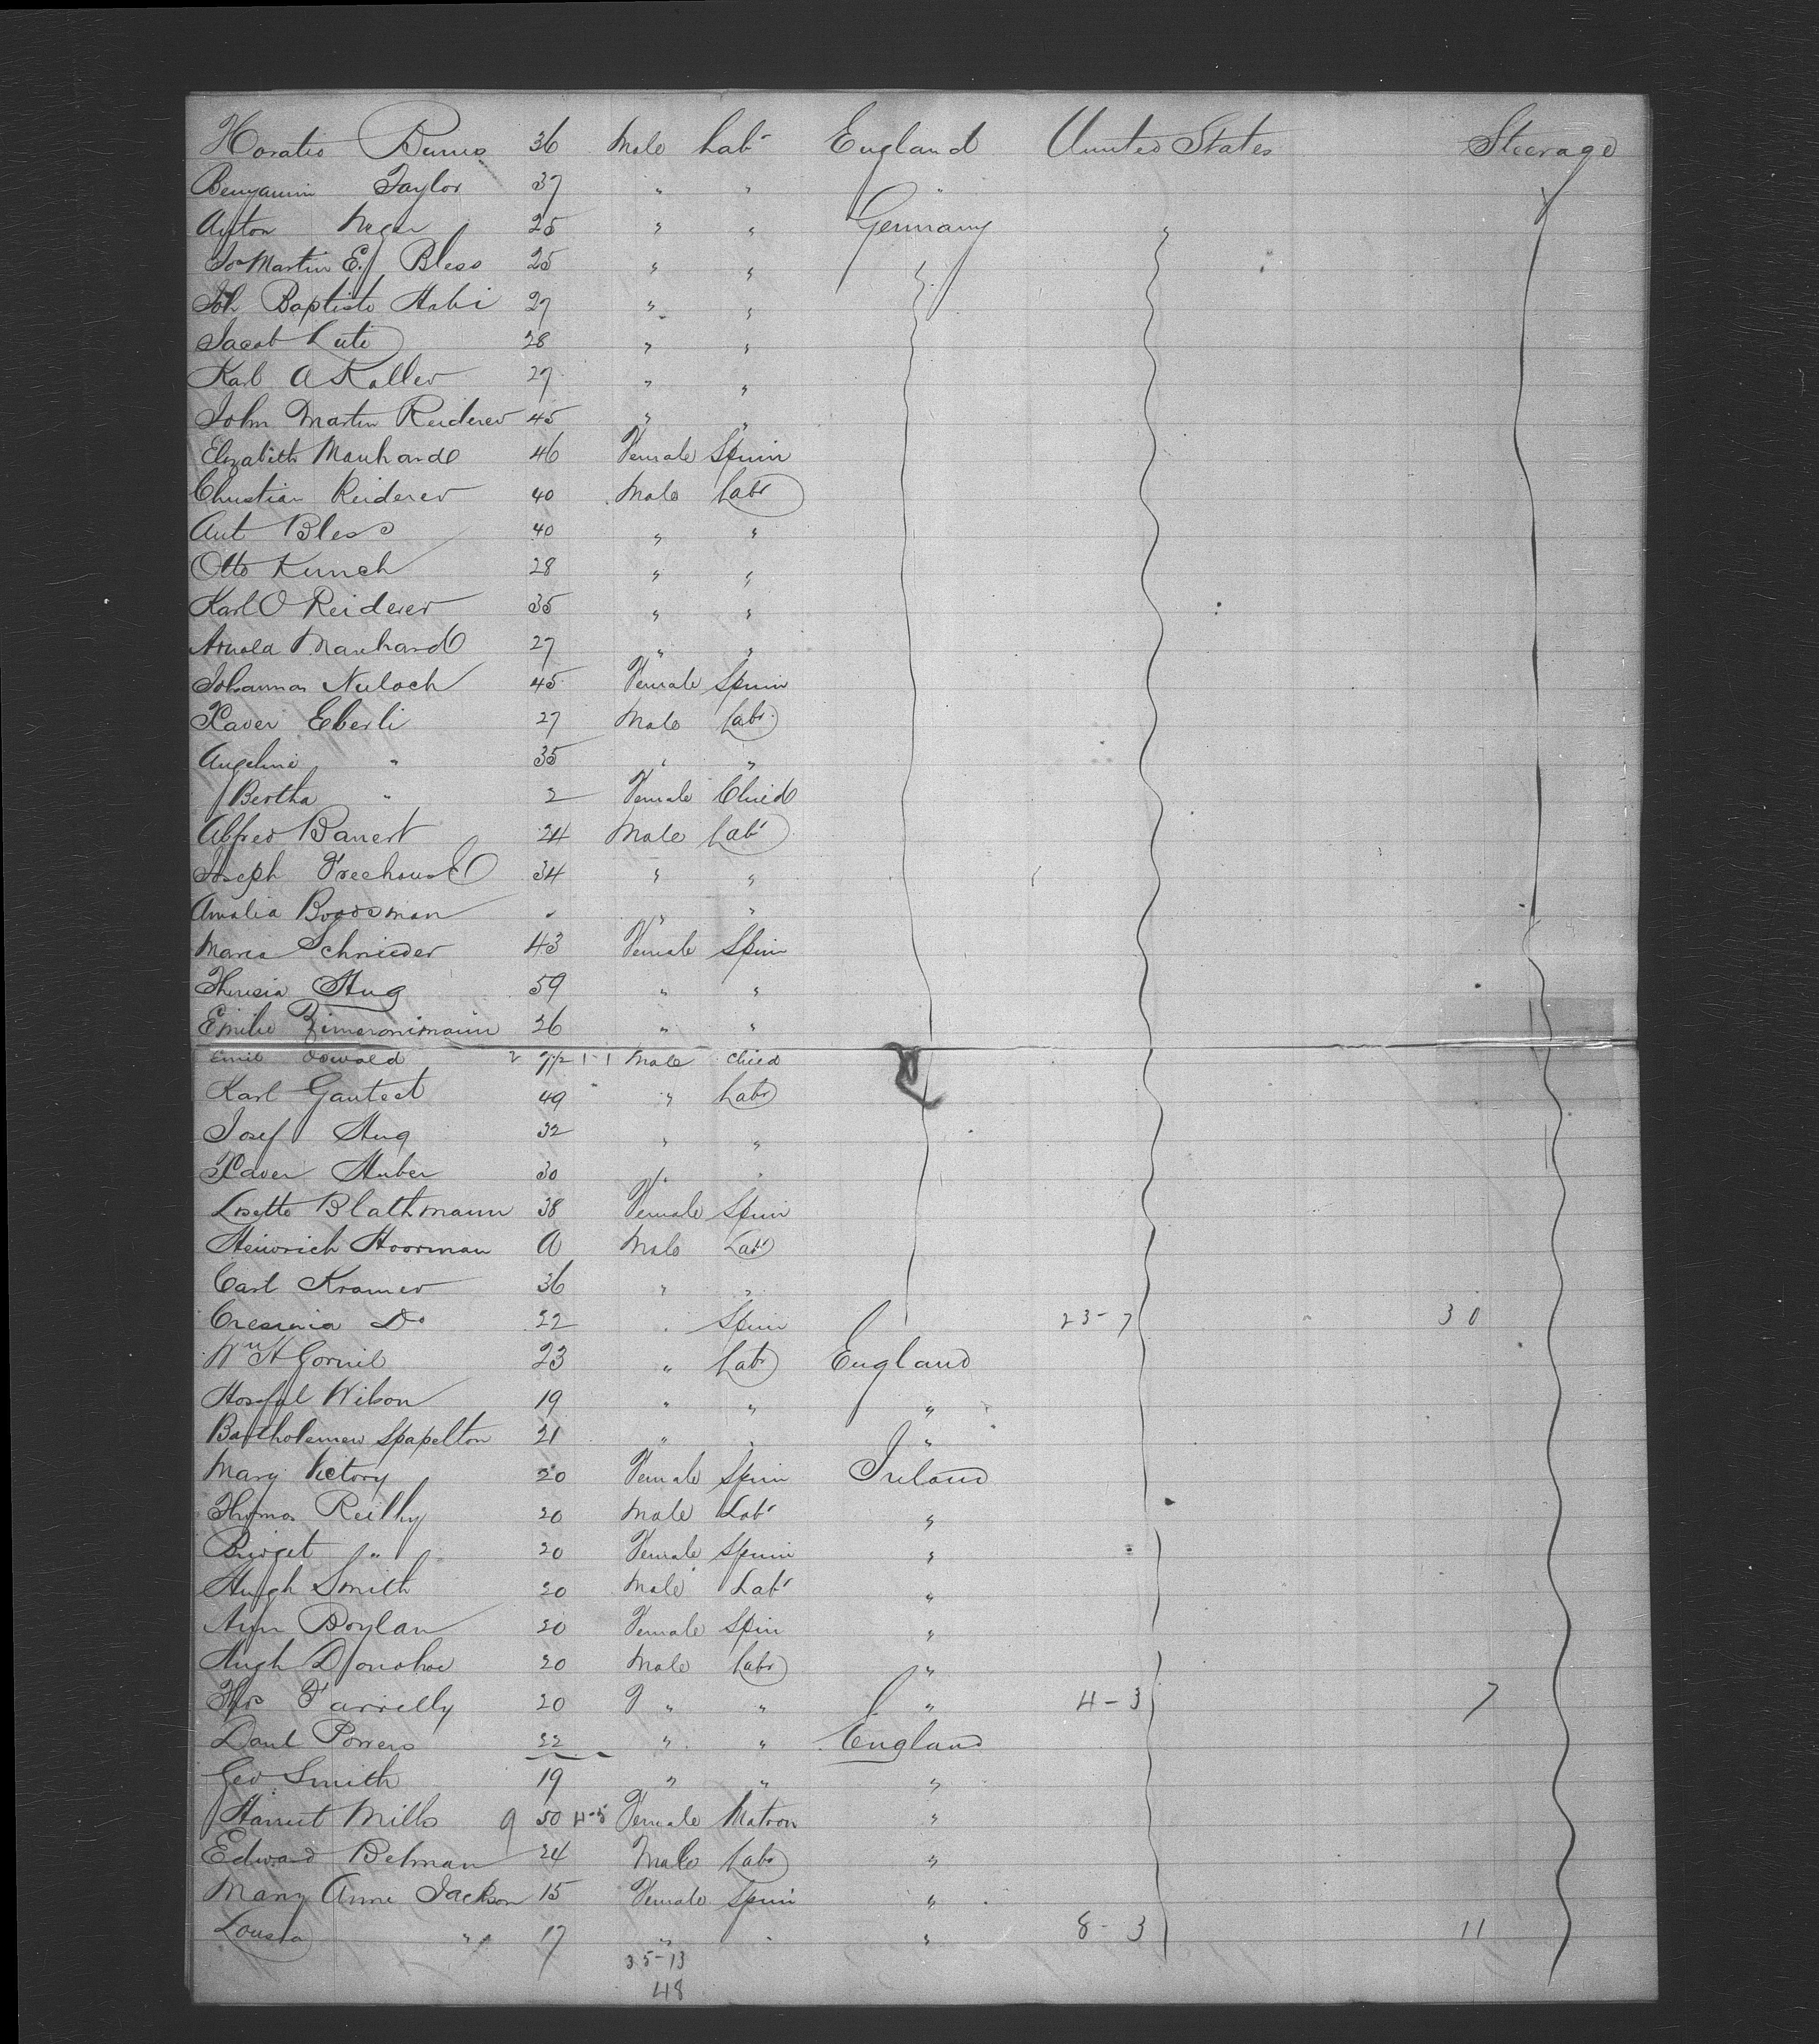 Horatio Burns 36 Male Labr England United States Steerage
Benjamin Taylor 37 " " "
Anton Neger 25 " " Germany "
Jos Martin E. Bless 25 " " "
Joh Baptiste Habi 27 " "
Jacob Lute 28 " "
Karl A Kaller 27 " "
John Martin Reiderer 45 " "
Elizabeth Manhard 46 Female Spin
Christian Reiderer 40 Male Labr
Ant Bless 40 " "
Otto Kunch 28 " "
Karl O Reiderer 35 " "
Arnold Manhard 27 " "
Johanna Nuloch 45 Female Spin
Xaver Eberli 27 Male Labr
Angeline " 35 " "
Bertha " 2 Female Child
Alfred Banert 24 Male Labr
Joseph Freehousd 34 " "
Amalia Boosman " " "
Maria Schnieder 43 Female Spin
Theresia Hug 59 " "
Emilie Zimeronimann 26 " "
Emil Oswald Male Child
Karl Gautect 49 " Labr
Josef Hug 32 " "
Xaver Huber 30 " "
Lisette Blathmann 38 Female Spin
Heinrich Hoorman A Male Labr
Carl Kramer 36 " "
Cresenia Do 22 " Spin 23-7 30
Wm H Gornil 23 " Labr England
Wilson 19 " " "
Bartholemew Spapelton 21 " " "
Mary Victory 20 Female Spin Ireland
Thomas Reilly 20 Male Labr "
Bridget " 20 Female Spin "
Hugh Smith 20 Male Labr "
Ann Boylan 20 Female Spin "
Hugh Donohoe 20 Male Labr "
Thos Farrelly 20 " " " 4-3 7
Danl Powers 22 " " England
Geo Smith 19 " " "
Harriet Mills 9 50 4-5 Female Matron "
Edward Betman 24 Male Labr "
Mary Anne Jackson 15 Female Spin "
Lousia " 17 " " " 8-3 11
35-13
48